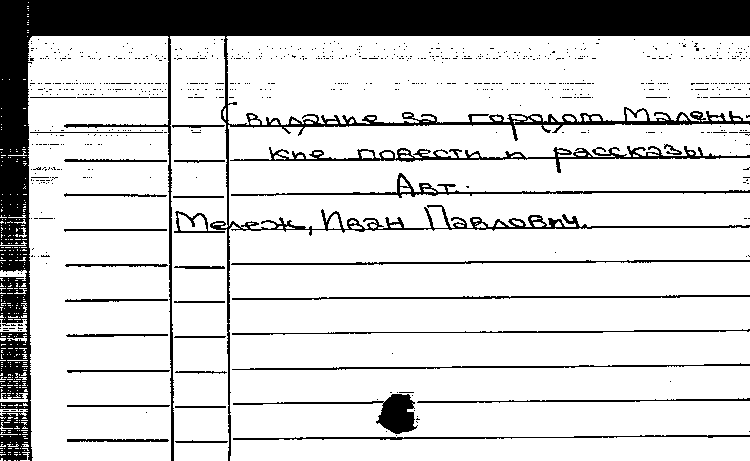 Свидание за городом. Малень-
кие повести и рассказы.
Авт.:
Мележ, Иван Павлович.